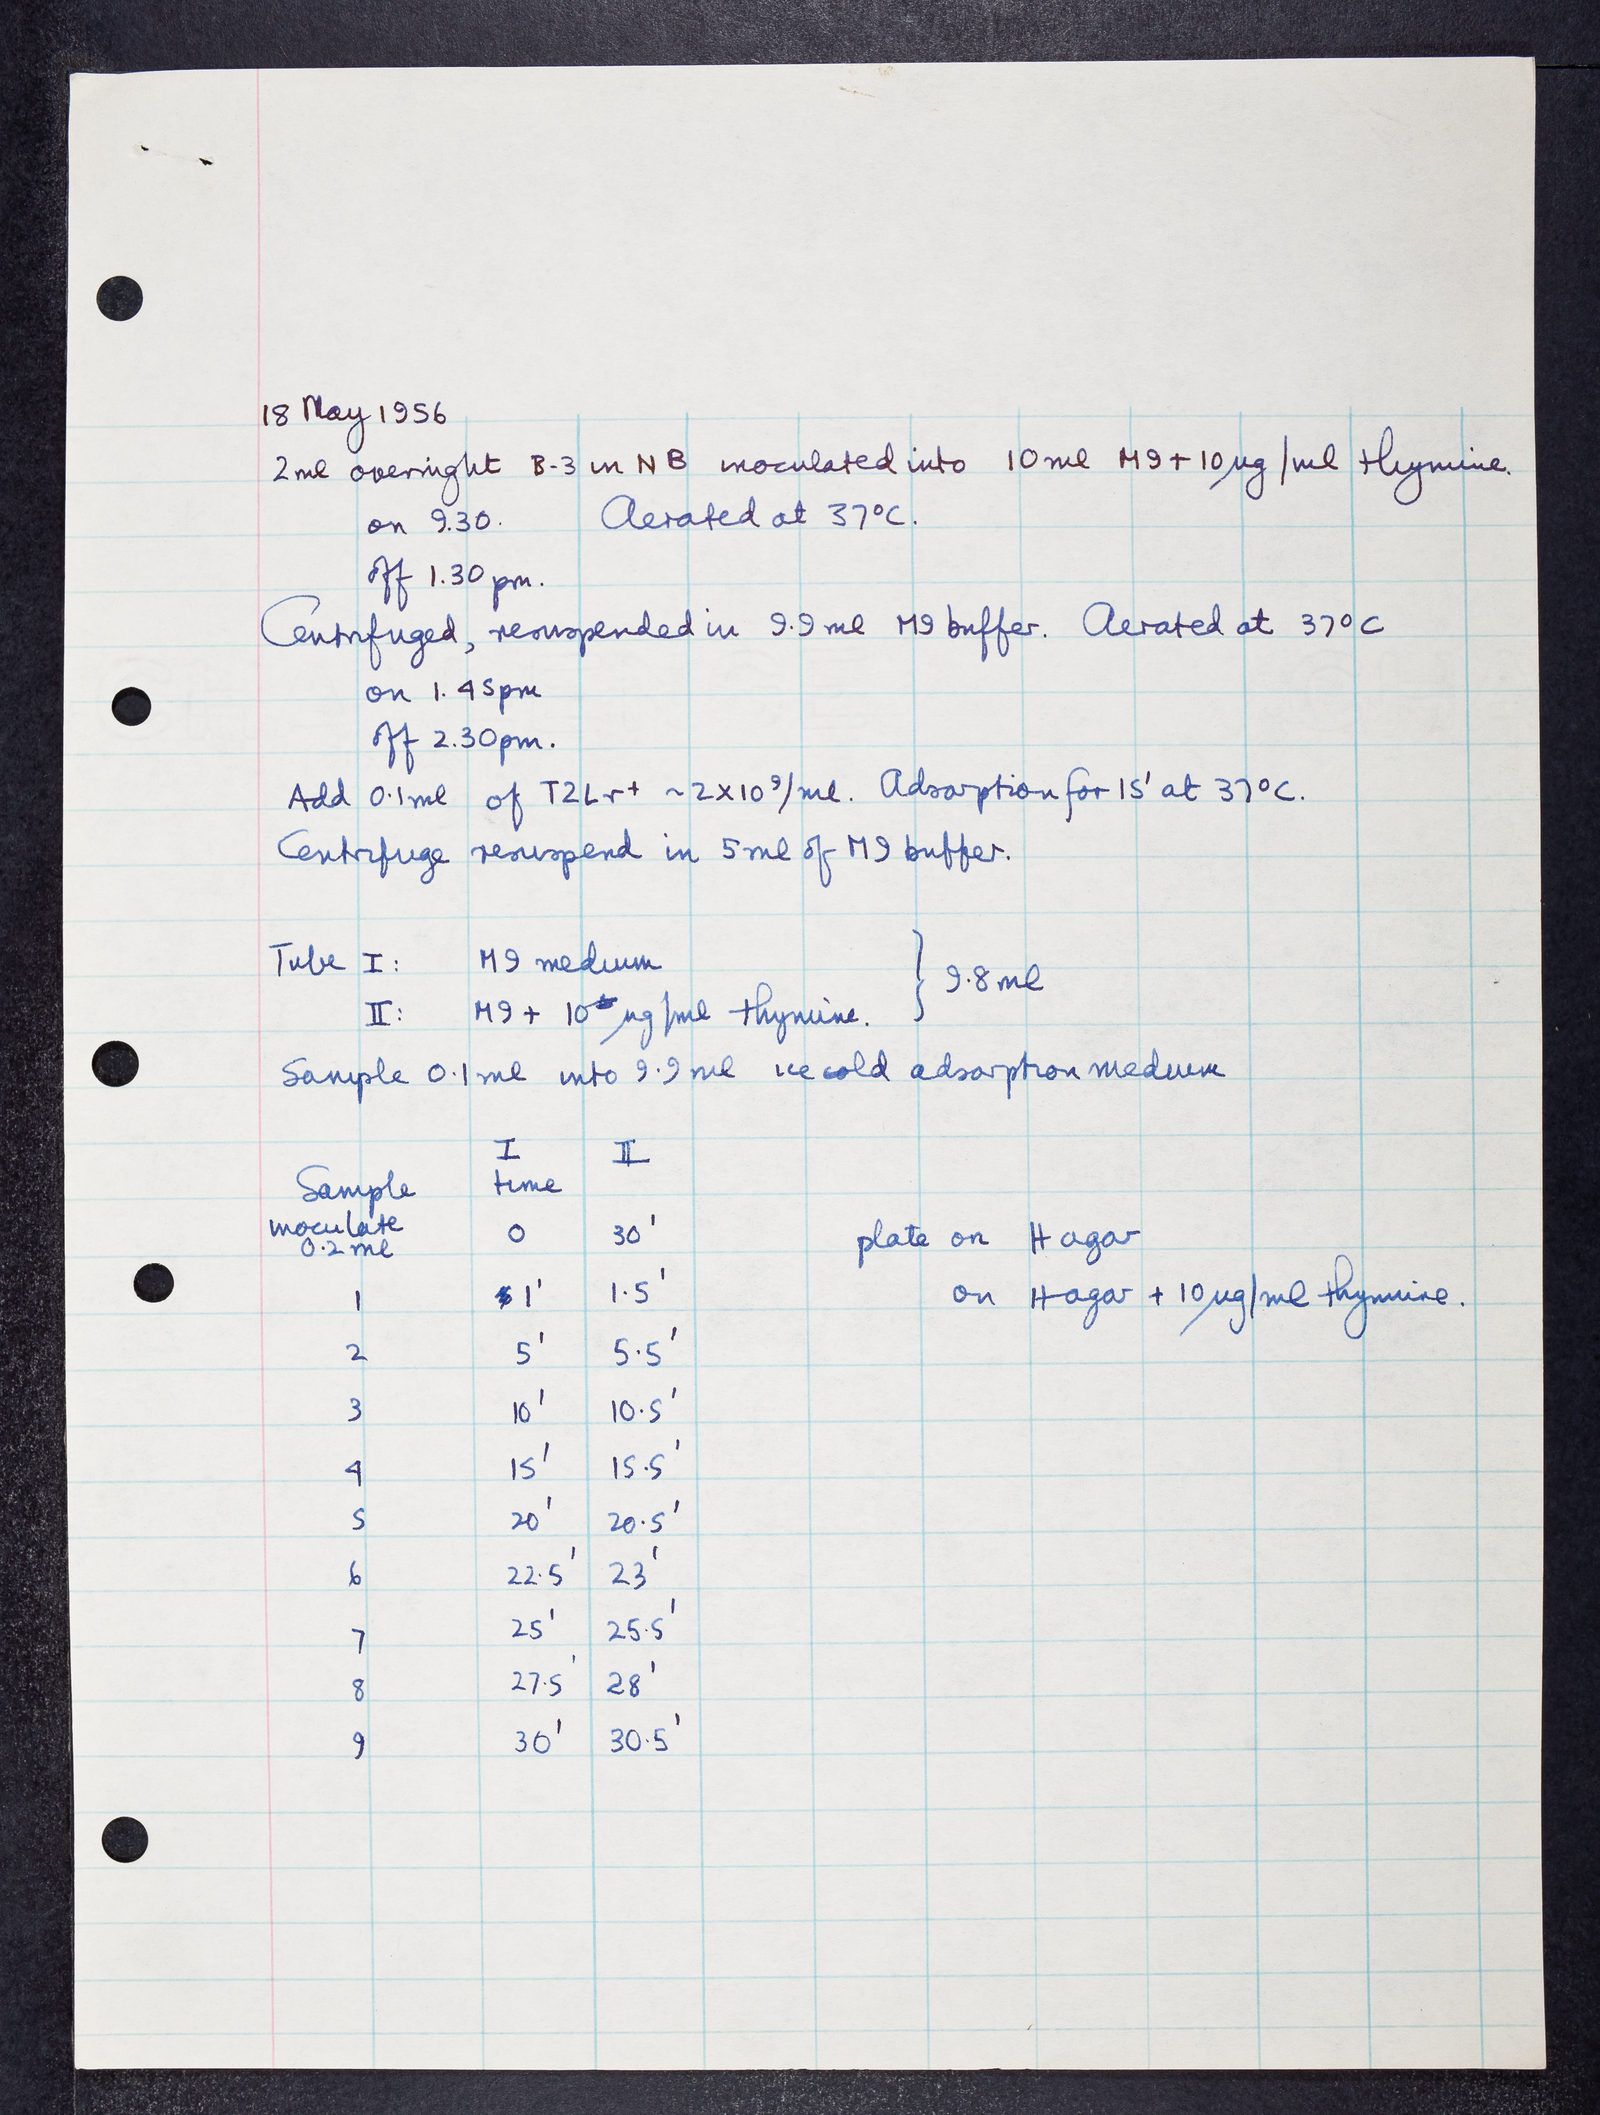 18 May 1956
2ml overnight B-3 in NB inoculated into 10ml M9 + 10µg/ml thymine.
on 9.30. Aerated at 37°C.
off 1.30pm.
Centrifuged, resuspended in 9.9ml M9 buffer. Aerated at 37°C
on 1.45pm
off 2.30pm.
Add 0.1ml of T2Lr+ ~2x10⁹/ml. Adsorption for 15' at 37°C.
Centrifuge resuspend in 5ml of M9 buffer.
Tube I: M9 medium } 9.8ml
II: M9 + 10 µg/ml thymine.
Sample 0.1ml into 9.9ml ice cold adsorption medium
I II
Sample time
inoculate
0.2ml 0 30' plate on H agar
1 1' 1.5' on H agar + 10µg/ml thymine.
2 5' 5.5'
3 10' 10.5'
4 15' 15.5'
5 20' 20.5'
6 22.5' 23'
7 25' 25.5'
8 27.5' 28'
9 30' 30.5'